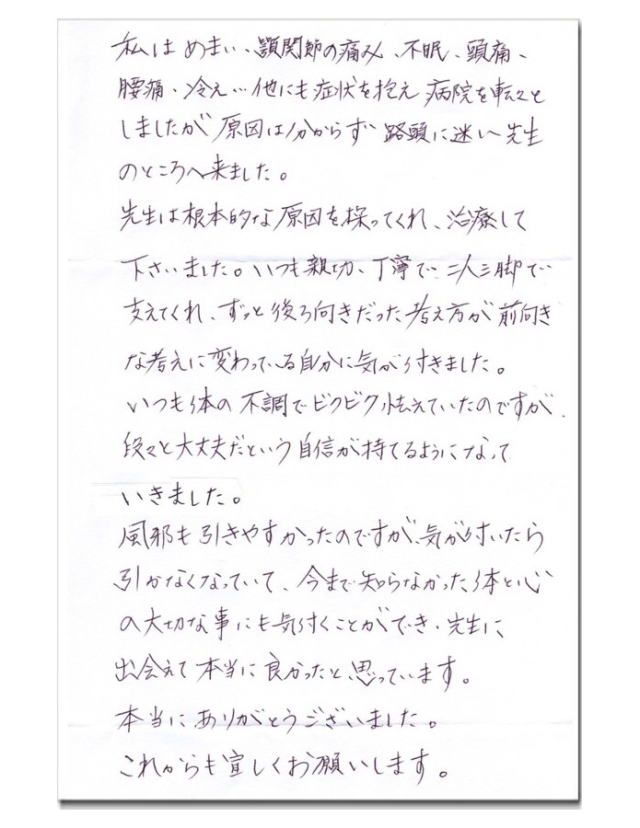 私はめまい、顎関節の痛み、不眠、頭痛、
腰痛、冷え…他にも症状を抱え病院を転々と
しましたが原因は分からず路頭に迷い先生
のところへ来ました。
先生は根本的な原因を探ってくれ、治療して
下さいました。いつも親切、丁寧で二人三脚で
支えてくれ、ずっと後ろ向きだった考え方が前向き
な考えに変わっている自分に気が付きました。
いつも体の不調でビクビク怯えていたのですが、
段々と大丈夫だという自信が持てるようになって
いきました。
風邪も引きやすかったのですが、気が付いたら
引かなくなっていて、今まで知らなかった体と心
の大切な事にも気付くことができ、先生に
出会えて本当に良かったと思っています。
本当にありがとうございました。
これからも宜しくお願いします。